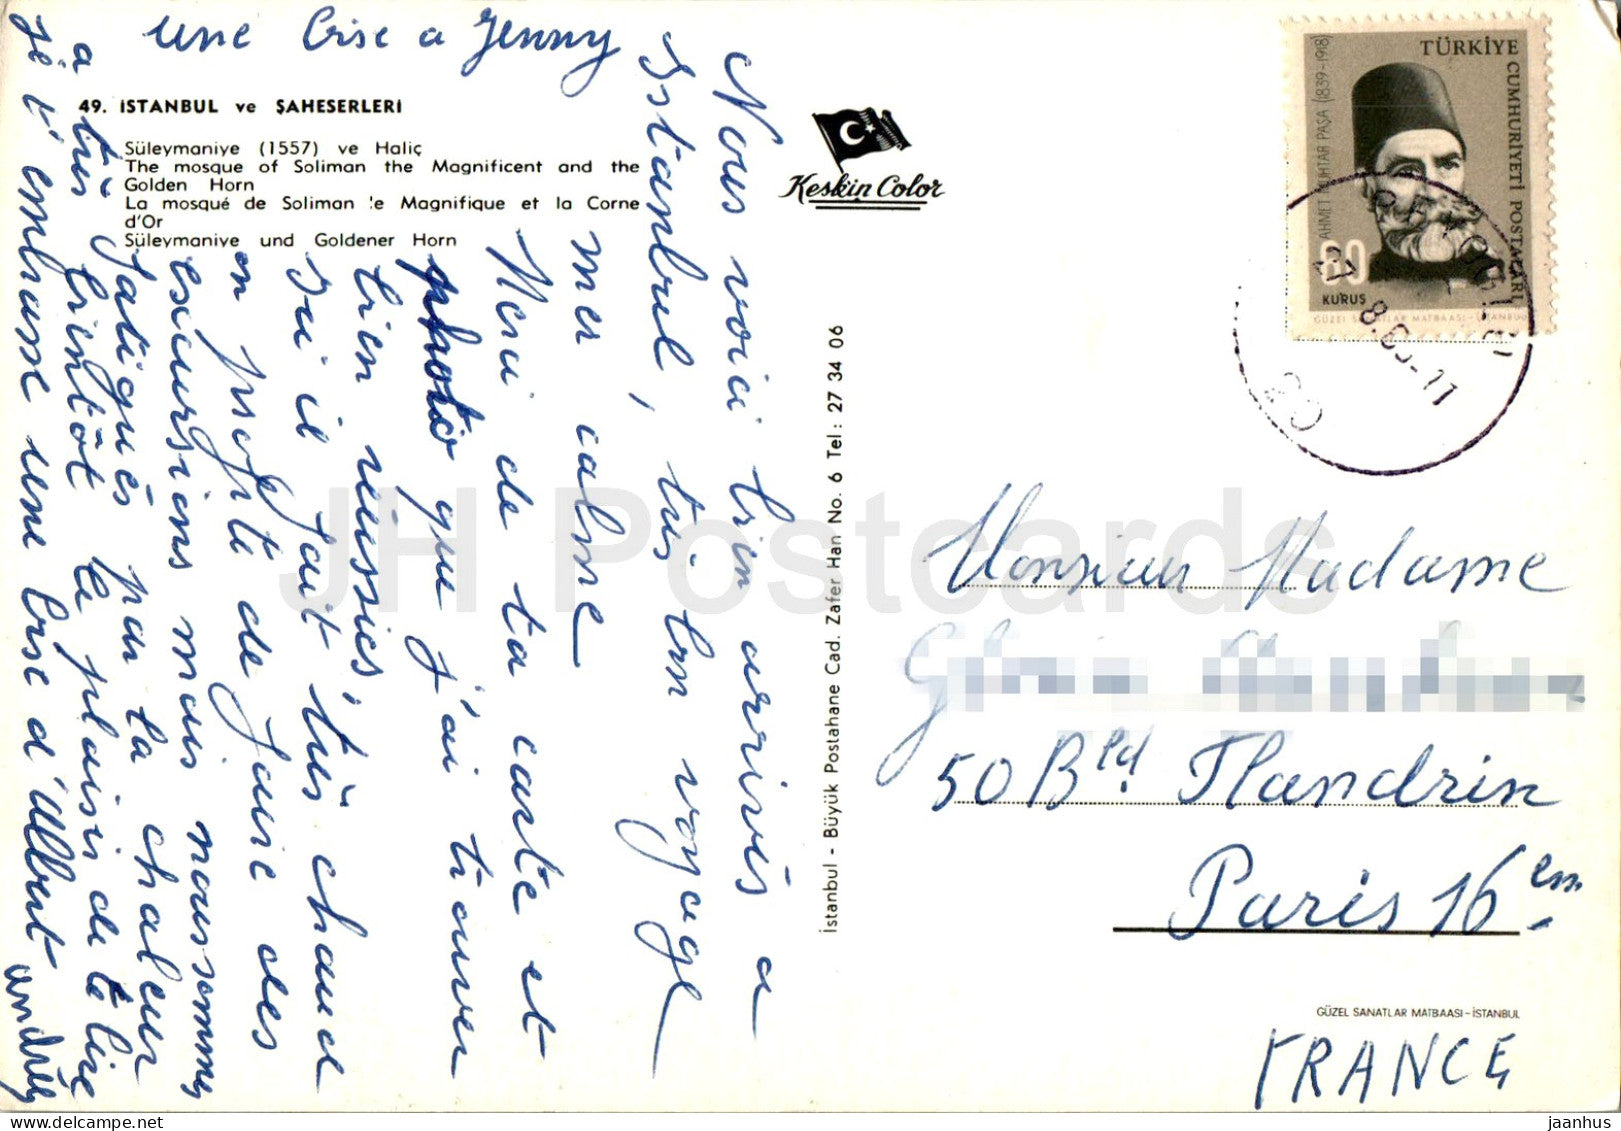 une bise a Jenny
49. İSTANBUL ve ŞAHESERLERİ
Süleymaniye (1557) ve Haliç
The mosque of Soliman the Magnificent and the
Golden Horn
La mosqué de Soliman le Magnifique et la Corne
d'Or
Süleymaniye und Goldener Horn
Nous voici bien arrivés a
Istanbul, très bon voyage
mer calme
Merci de ta carte et
photo que j'ai trouver
bien réussies,
ici il fait très chaud
on profite de faire des
escursiens mais nous sommes
fatigués par la chaleur
a très bientôt le plaisir de te lire
je t'embrasse une bise d'Albert
andrée
Keskin Color
İstanbul - Büyük Postahane Cad. Zafer Han No. 6 Tel: 27 34 06
TÜRKİYE CUMHURİYETİ POSTALARI
AHMET MUHTAR PAŞA (1839-1918)
60
KURUŞ
GÜZEL SANATLAR MATBAASI-İSTANBUL
Monsieur Madame
50 Bld Flandrin
Paris 16em
GÜZEL SANATLAR MATBAASI-İSTANBUL
FRANCE
JH Postcards
delcampe.net
jaanhus